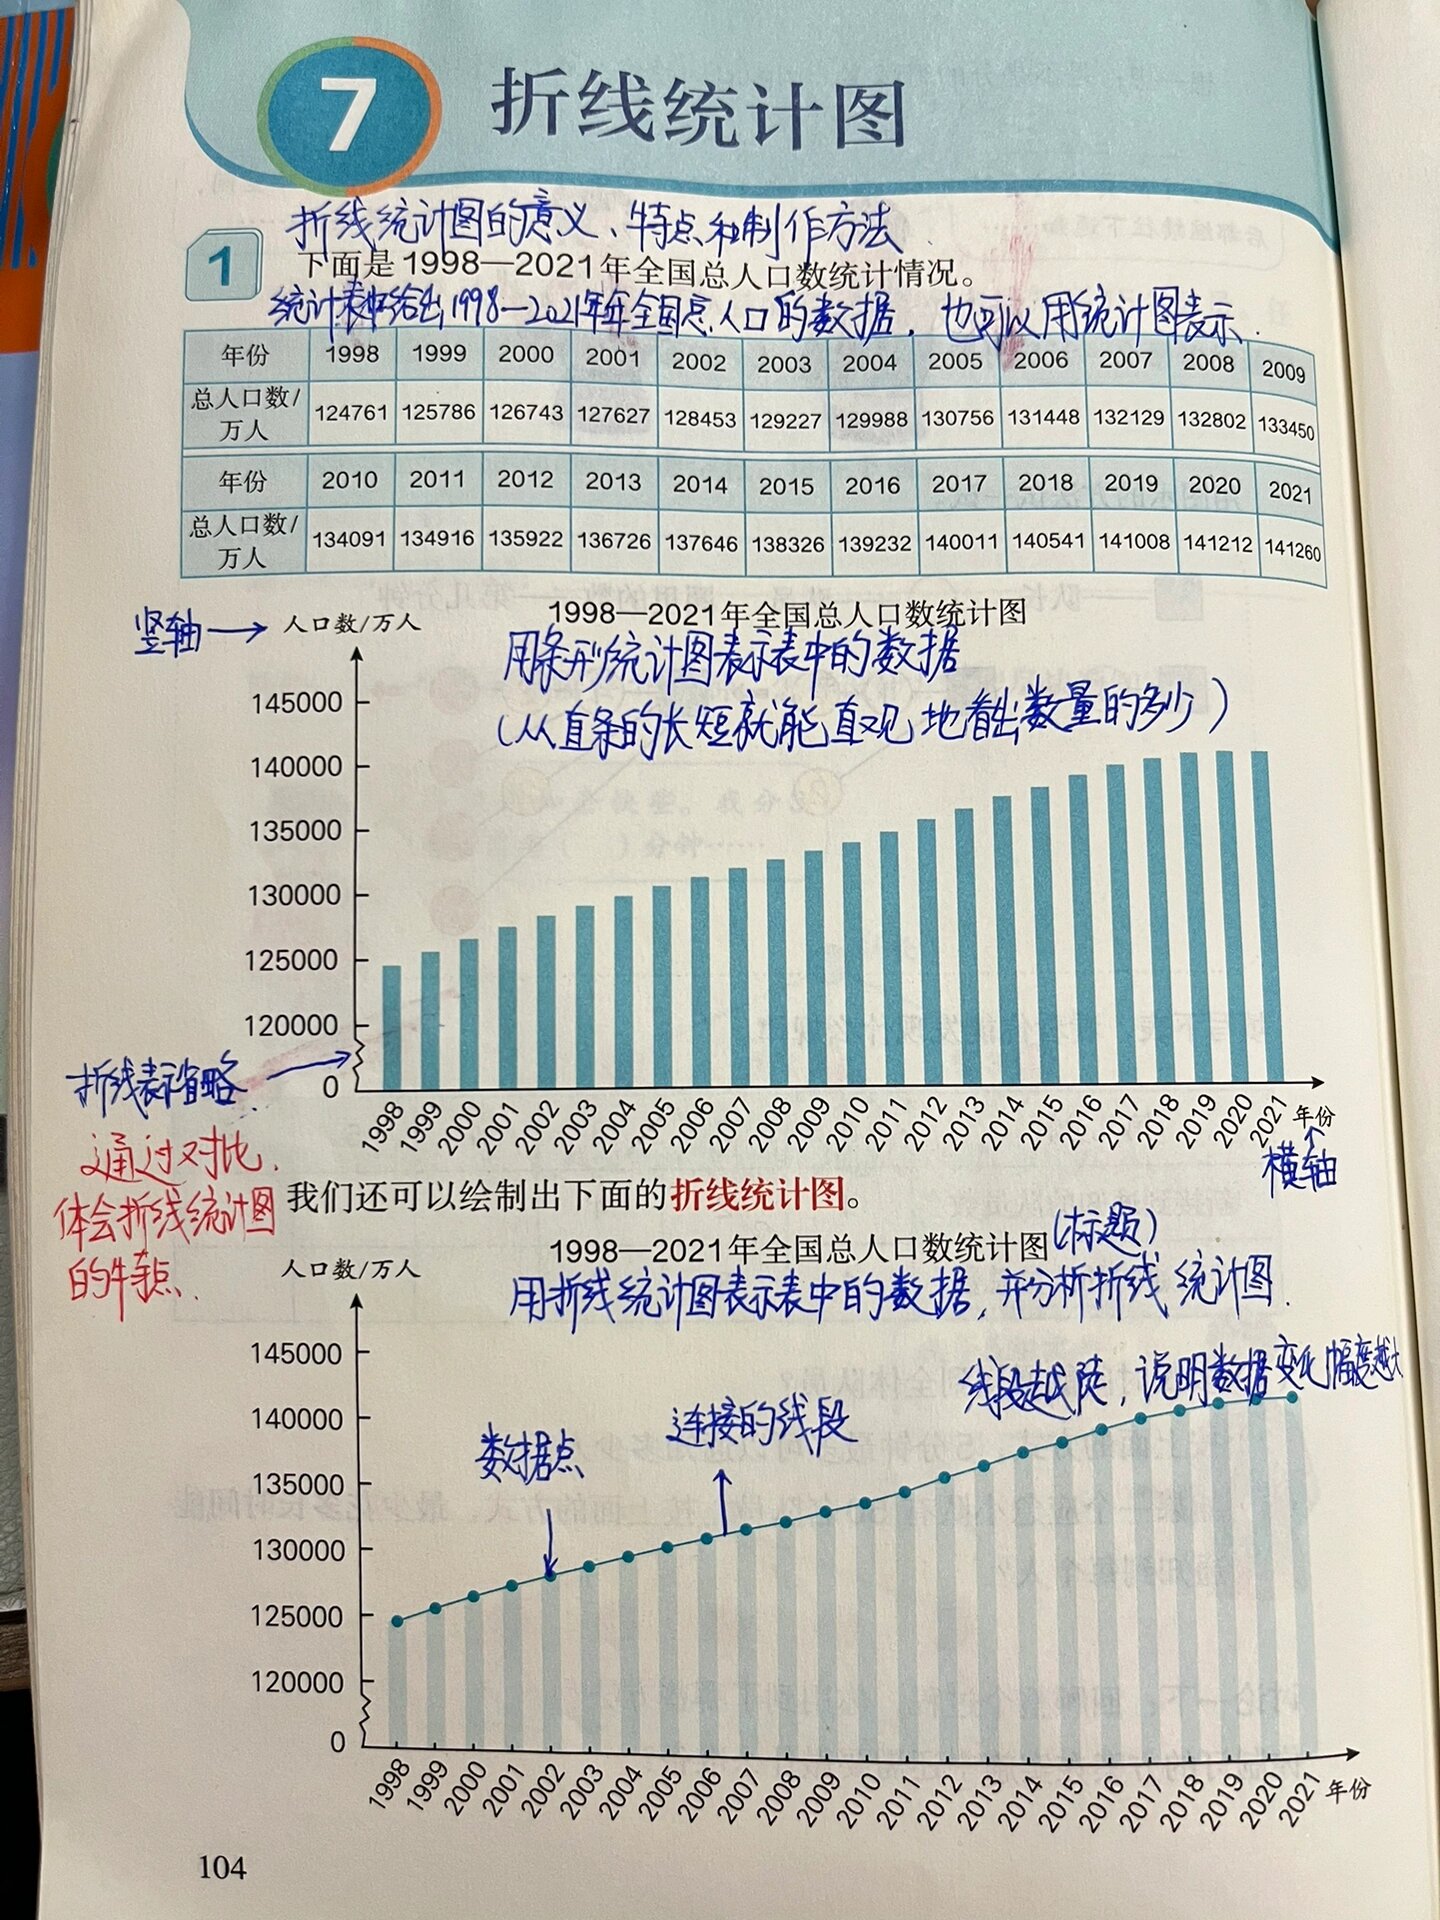 7
折线统计图
折线统计图的意义、特点和制作方法
1
下面是1998—2021年全国总人口数统计情况。
统计表中给出1998—2021年年全国总人口的数据，也可以用统计图表示.
年份 1998 1999 2000 2001 2002 2003 2004 2005 2006 2007 2008 2009
总人口数/万人 124761 125786 126743 127627 128453 129227 129988 130756 131448 132129 132802 133450
年份 2010 2011 2012 2013 2014 2015 2016 2017 2018 2019 2020 2021
总人口数/万人 134091 134916 135922 136726 137646 138326 139232 140011 140541 141008 141212 141260
1998—2021年全国总人口数统计图
竖轴→ 人口数/万人
用条形统计图表示表中的数据
（从直条的长短就能直观地看出数量的多少）
145000
140000
135000
130000
125000
120000
折线表示省略
0
1998 1999 2000 2001 2002 2003 2004 2005 2006 2007 2008 2009 2010 2011 2012 2013 2014 2015 2016 2017 2018 2019 2020 2021 年份
横轴
通过对比,
体会折线统计图
的特点.
我们还可以绘制出下面的折线统计图。
1998—2021年全国总人口数统计图(标题)
人口数/万人
用折线统计图表示表中的数据，并分析折线统计图.
线段越陡，说明数据变化幅度越大
连接的线段
数据点
145000
140000
135000
130000
125000
120000
0
1998 1999 2000 2001 2002 2003 2004 2005 2006 2007 2008 2009 2010 2011 2012 2013 2014 2015 2016 2017 2018 2019 2020 2021 年份
104